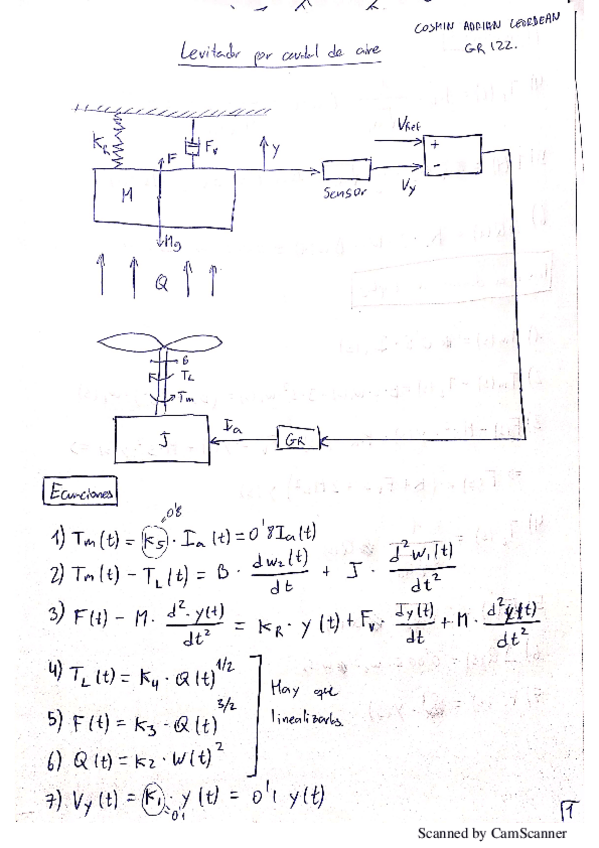 COSMIN ADRIAN LEORDEAN
GR 122.
Levitador por caudal de aire
K_R
F
F_v
y
V_Ref
+
-
M
Sensor
V_y
Mg
Q
B
T_L
T_m
J
I_a
GR
Ecuaciones
0'8
1) T_m(t) = K_5 · I_a(t) = 0'8 I_a(t)
2) T_m(t) - T_L(t) = B · dw_2(t)/dt + J · d²w_1(t)/dt²
3) F(t) - M · d²·y(t)/dt² = K_R · y(t) + F_v · dy(t)/dt + M · d²y(t)/dt²
4) T_L(t) = K_4 · Q(t)^1/2
5) F(t) = K_3 - Q(t)^3/2
6) Q(t) = K_2 · W(t)^2
Hay que
linealizarlos.
7) V_y(t) = K_1 · y(t) = 0'1 y(t)
0'1
1
Scanned by CamScanner